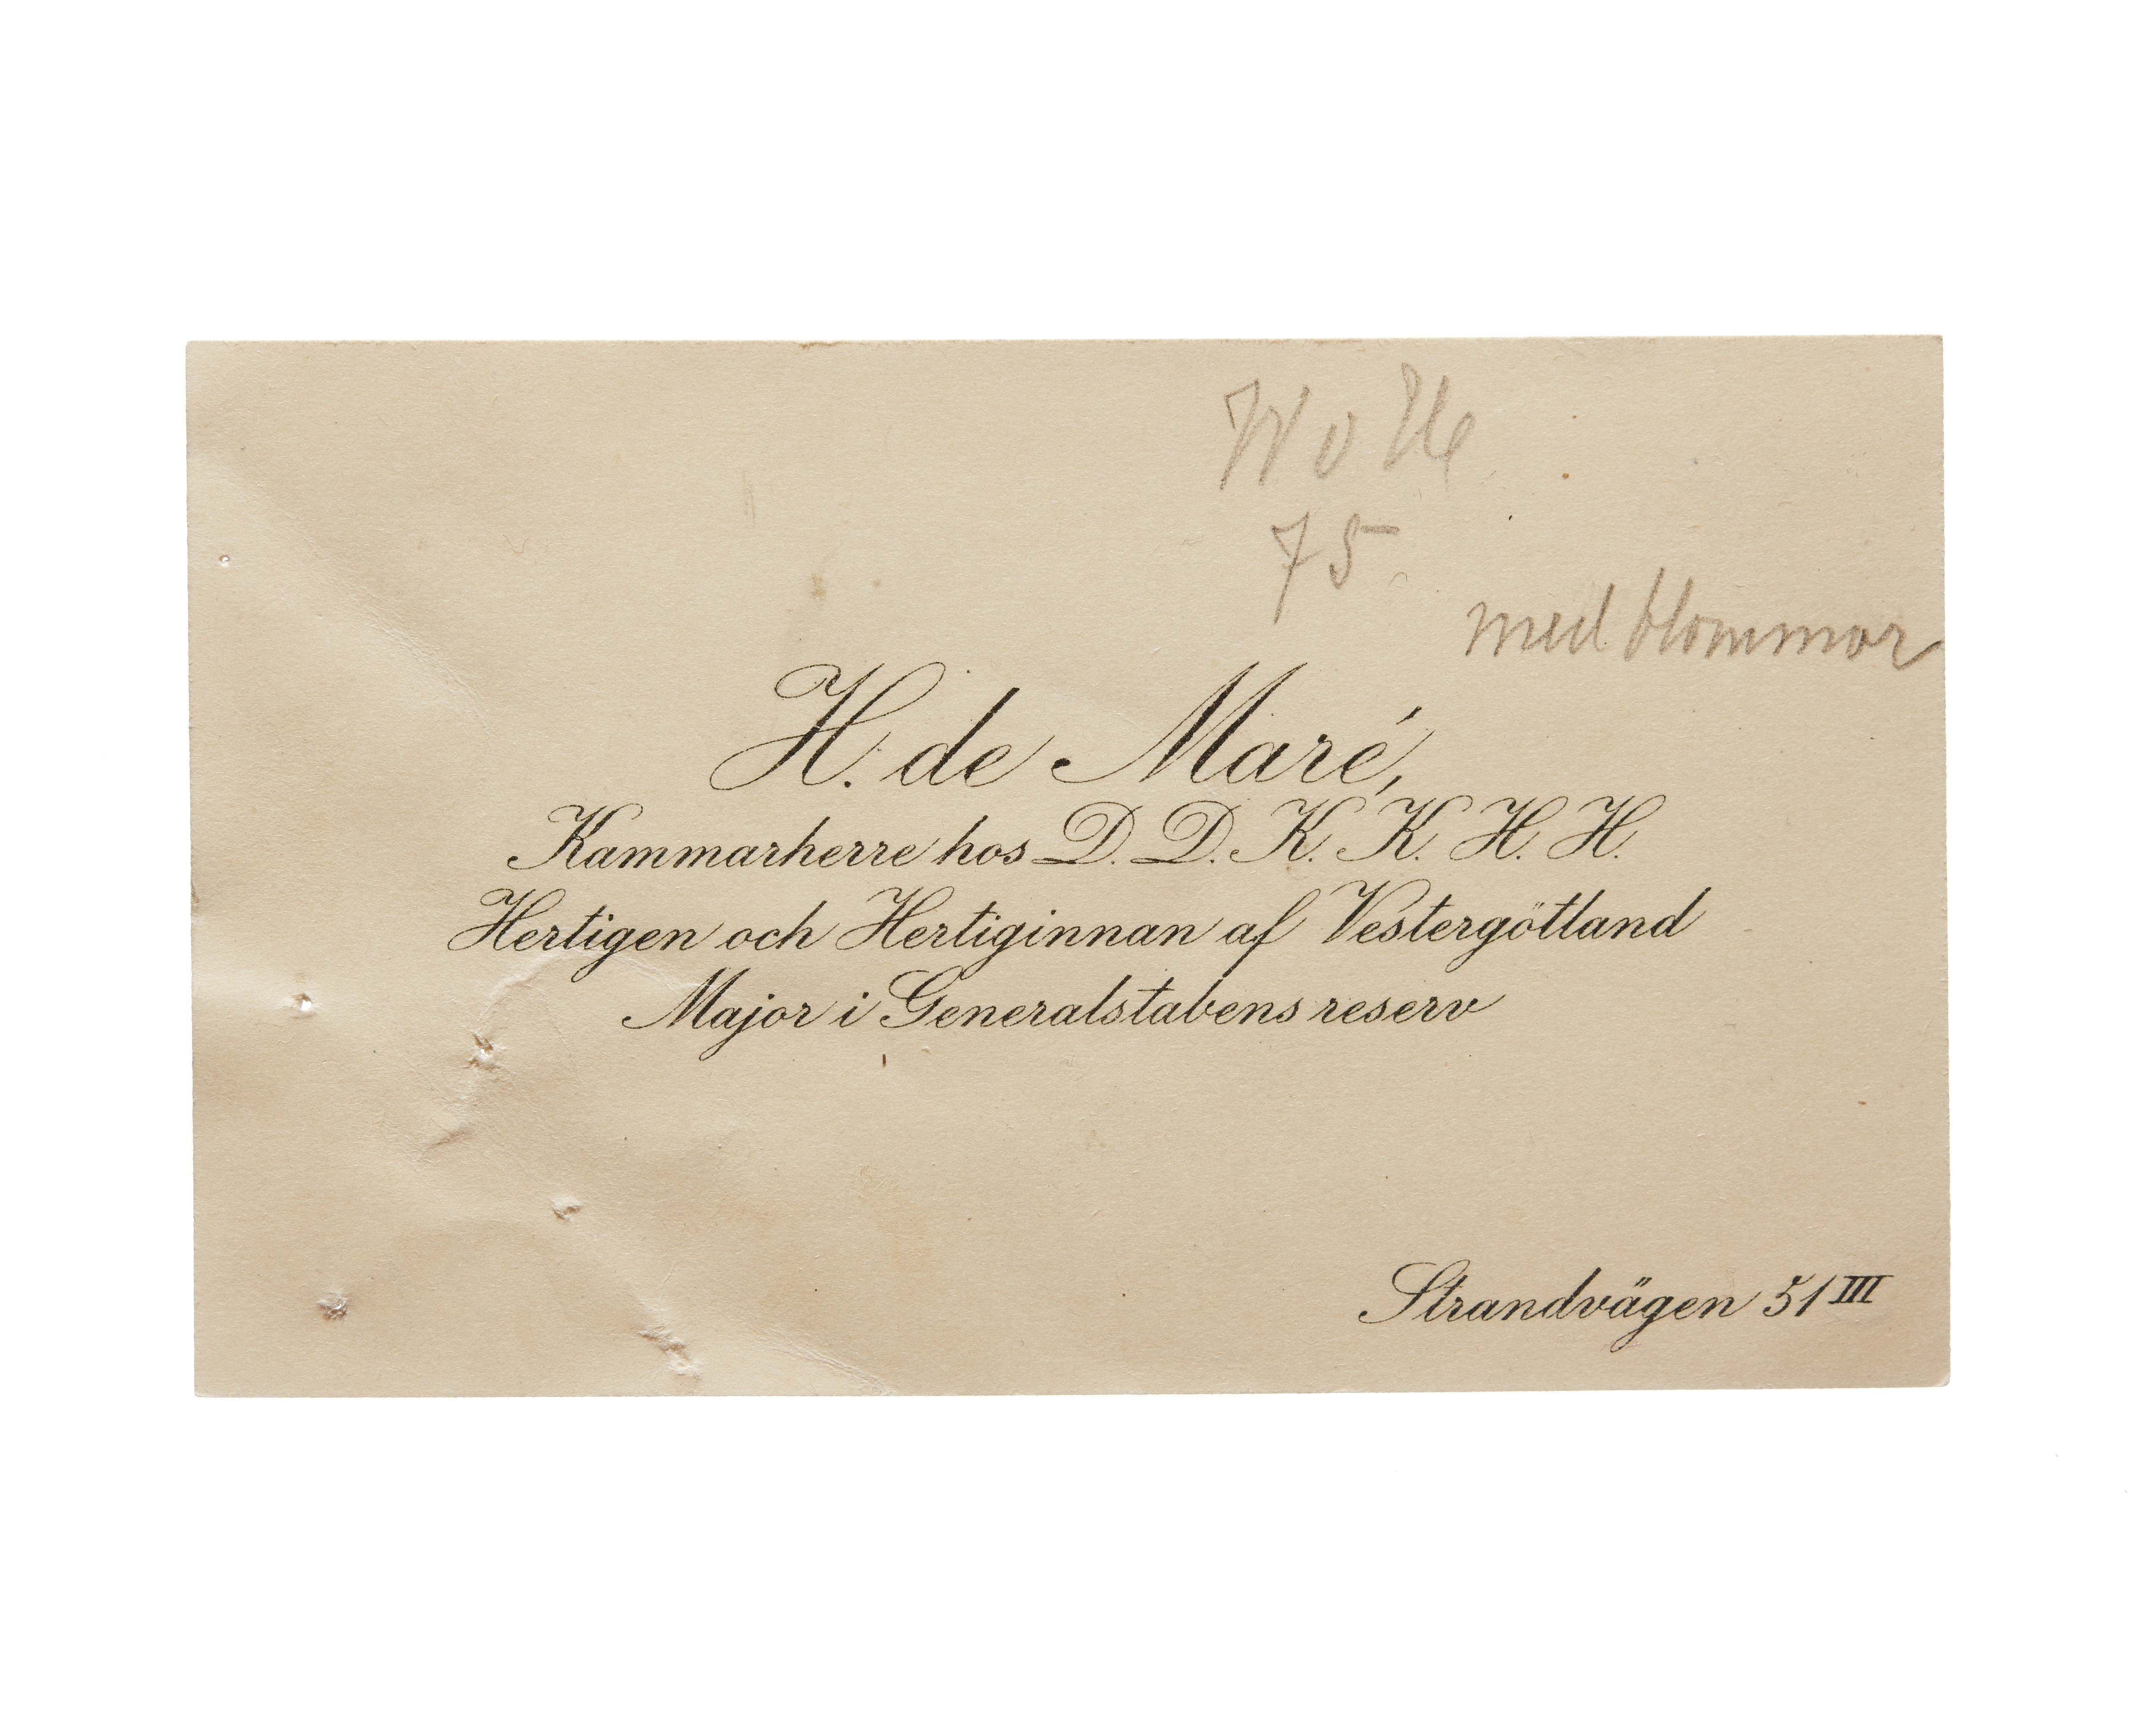 W v H
75
med blommor
H. de Maré,
Kammarherre hos D. D. K. K. H. H.
Hertigen och Hertiginnan af Vestergötland
Major i Generalstabens reserv
Strandvägen 51 III